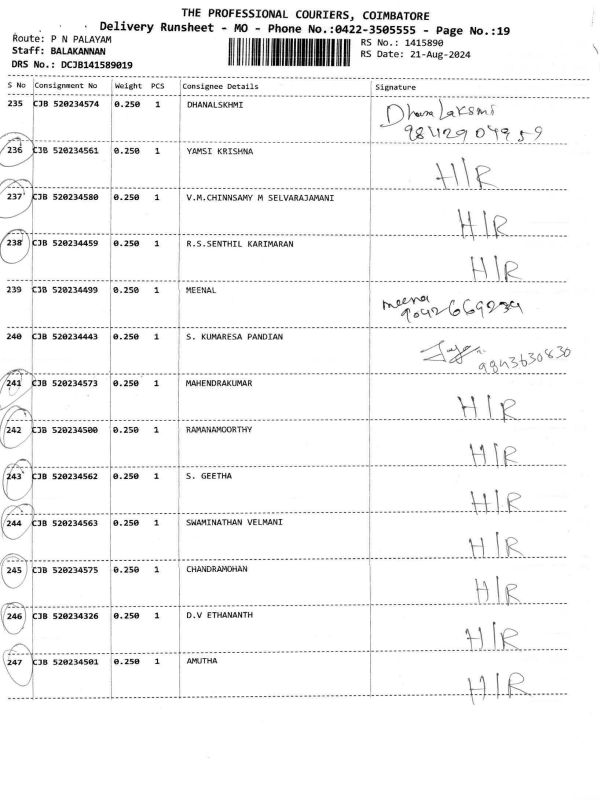 THE PROFESSIONAL COURIERS, COIMBATORE
Delivery Runsheet - MO - Phone No.:0422-3505555 - Page No.:19
Route: P N PALAYAM
RS No.: 1415890
Staff: BALAKANNAN
RS Date: 21-Aug-2024
DRS No.: DCJB141589019
S No Consignment No Weight PCS Consignee Details Signature
235 CJB 520234574 0.250 1 DHANALSKHMI Dhana Laksmi
9842904959
236 CJB 520234561 0.250 1 YAMSI KRISHNA H|R
237 CJB 520234580 0.250 1 V.M.CHINNSAMY M SELVARAJAMANI H|R
238 CJB 520234459 0.250 1 R.S.SENTHIL KARIMARAN H|R
239 CJB 520234499 0.250 1 MEENAL meena
9042669234
240 CJB 520234443 0.250 1 S. KUMARESA PANDIAN
9843630830
241 CJB 520234573 0.250 1 MAHENDRAKUMAR H|R
242 CJB 520234500 0.250 1 RAMANAMOORTHY H|R
243 CJB 520234562 0.250 1 S. GEETHA H|R
244 CJB 520234563 0.250 1 SWAMINATHAN VELMANI H|R
245 CJB 520234575 0.250 1 CHANDRAMOHAN H|R
246 CJB 520234326 0.250 1 D.V ETHANANTH H|R
247 CJB 520234501 0.250 1 AMUTHA H|R